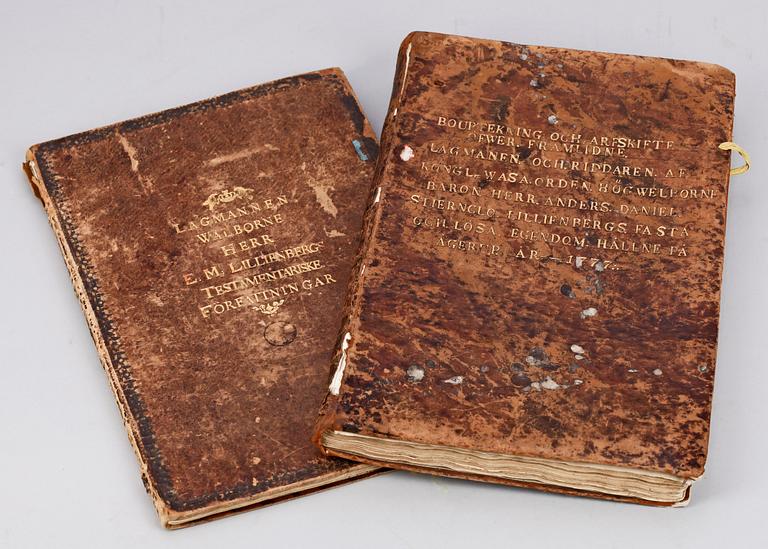 LAGMANNEN
WALBORNE
HERR
E. M. LILLIENBERGS
TESTAMENTARISKE
FÖRFATTNINGAR
BOUPTEKNING OCH ARFSKIFTE
ÖFWER. FRAMLIDNE.
LAGMANEN. OCH RIDDAREN. AF
KONGL. WASA. ORDEN. HÖGWELBORNE
BARON. HERR. ANDERS. DANIEL
STIERNCLO. LILLIENBERGS. FASTA
OCH LÖSA. EGENDOM. HÅLLNE. PÅ
ÅGERUP. ÅR. — 1777.